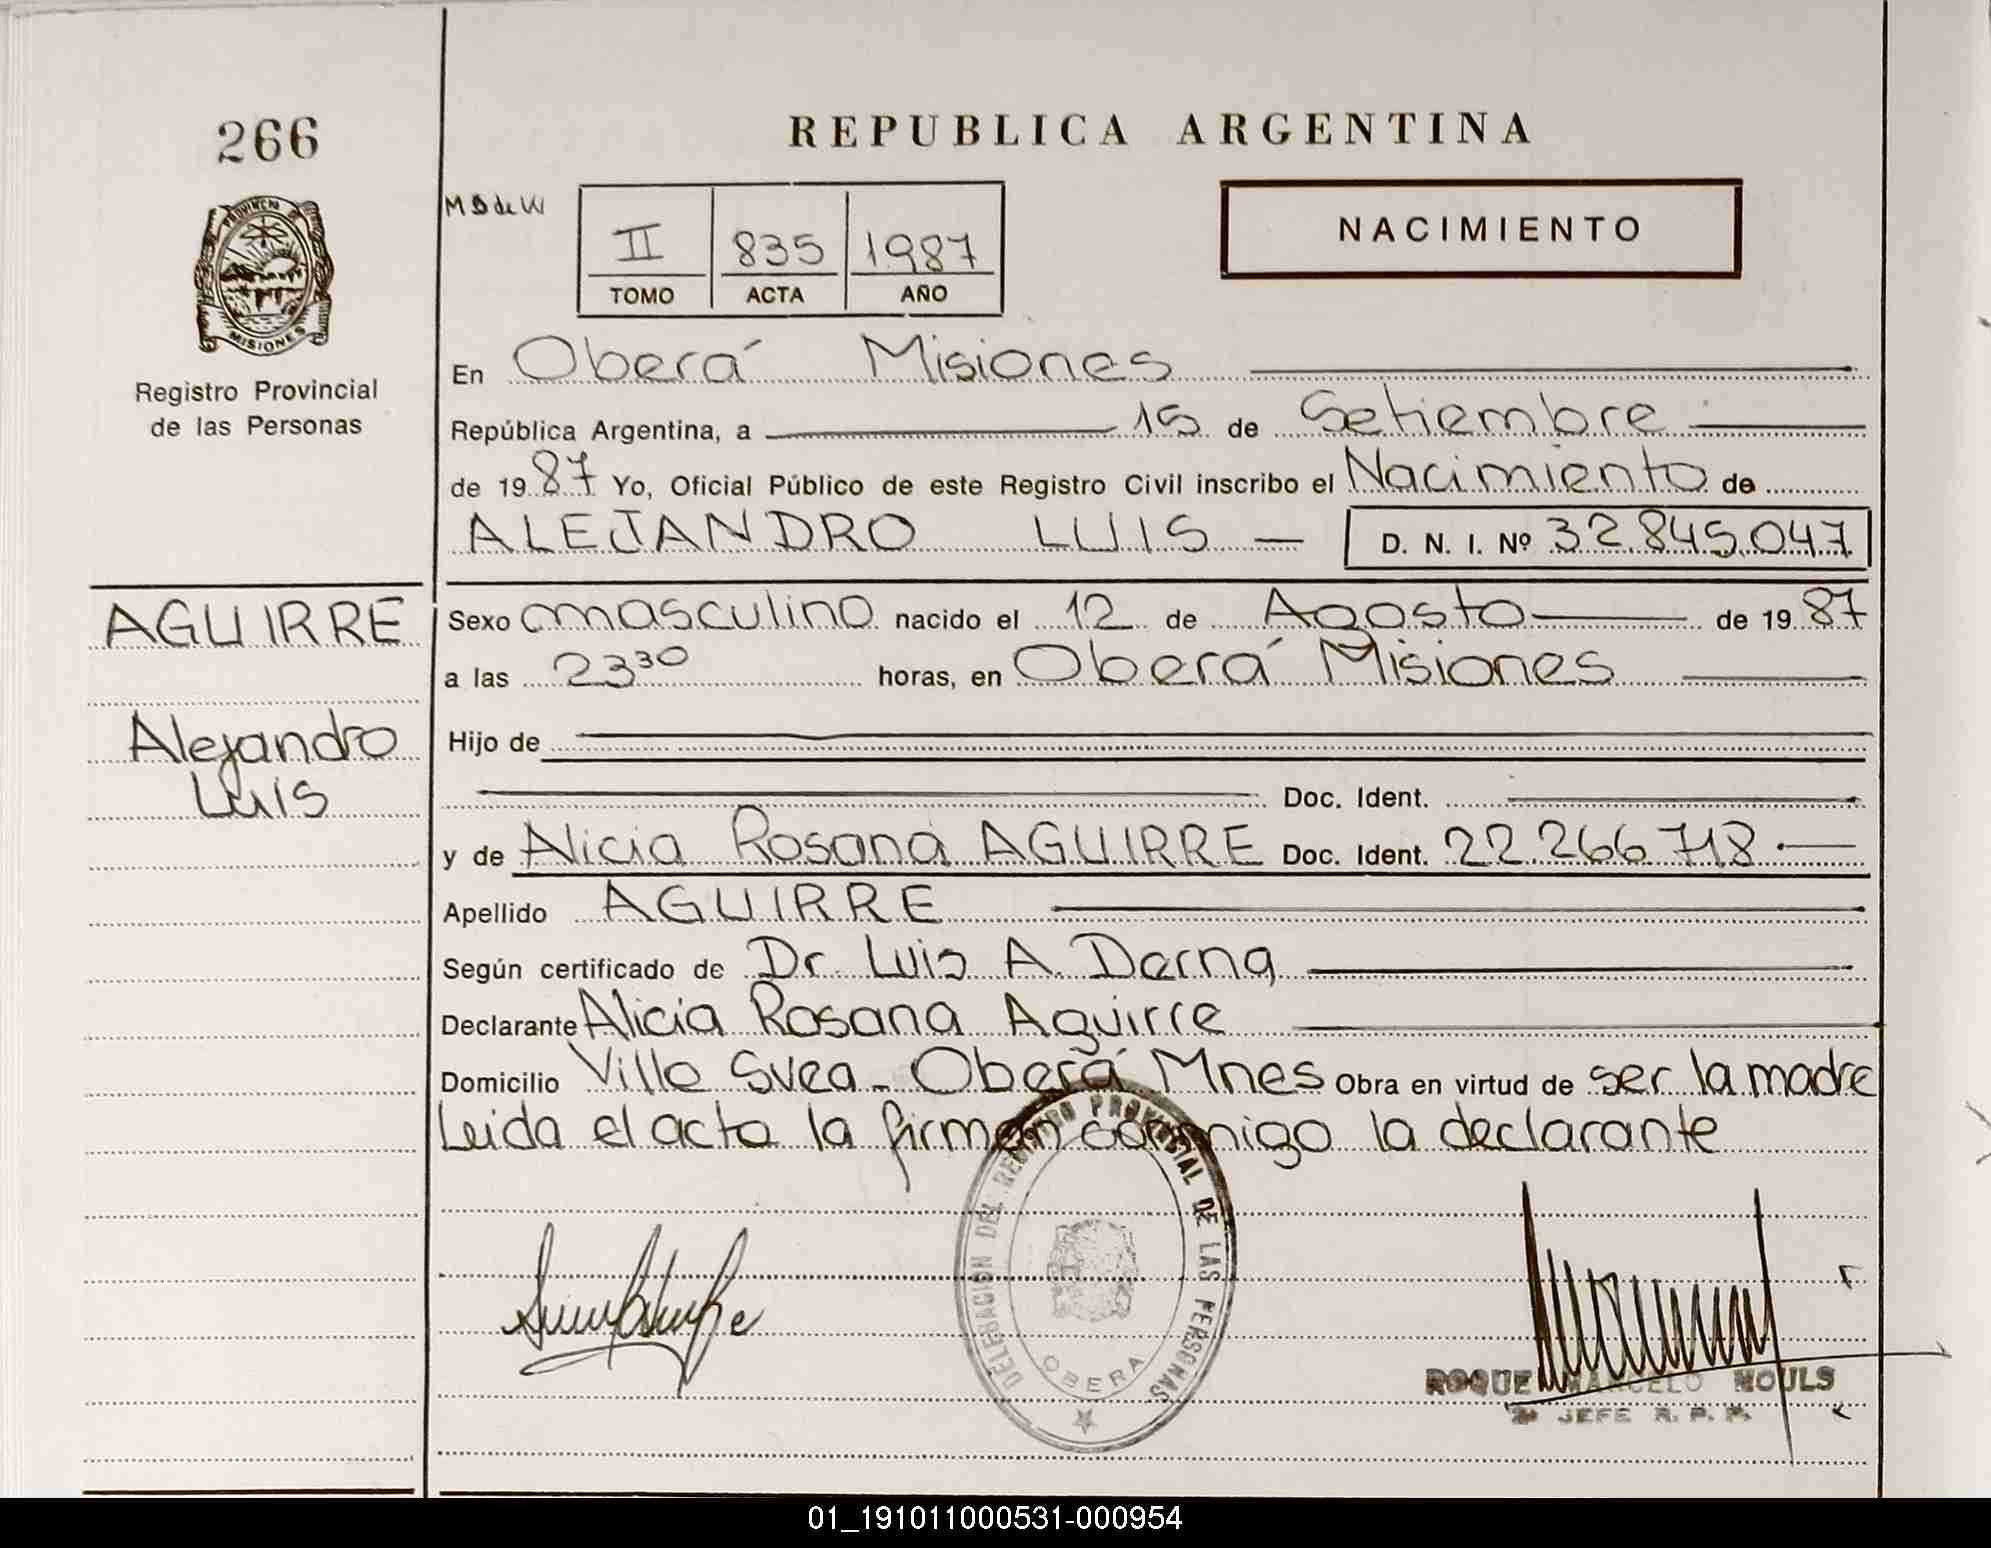 266
REPUBLICA ARGENTINA
PROVINCIA DE
MISIONES
Registro Provincial
de las Personas
II 835 1987
TOMO ACTA AÑO
NACIMIENTO
En Oberá Misiones
República Argentina, a 15 de Setiembre
de 1987 Yo, Oficial Público de este Registro Civil inscribo el Nacimiento de
ALEJANDRO LUIS — D. N. I. Nº 32.845.047
AGUIRRE
Alejandro
Luis
Sexo masculino nacido el 12 de Agosto de 1987
a las 23 30 horas, en Oberá Misiones
Hijo de
Doc. Ident.
y de Alicia Rosana AGUIRRE Doc. Ident. 22.266.718.—
Apellido AGUIRRE
Según certificado de Dr. Luis A. Derna
Declarante Alicia Rosana Aguirre
Domicilio Villa Svea - Oberá Mnes Obra en virtud de ser la madre
Leida el acta la firman conmigo la declarante
DELEGACION DEL REGISTRO PROVINCIAL DE LAS PERSONAS
OBERA
ROQUE MARCELO NOULS
JEFE R. P. P.
01_191011000531-000954